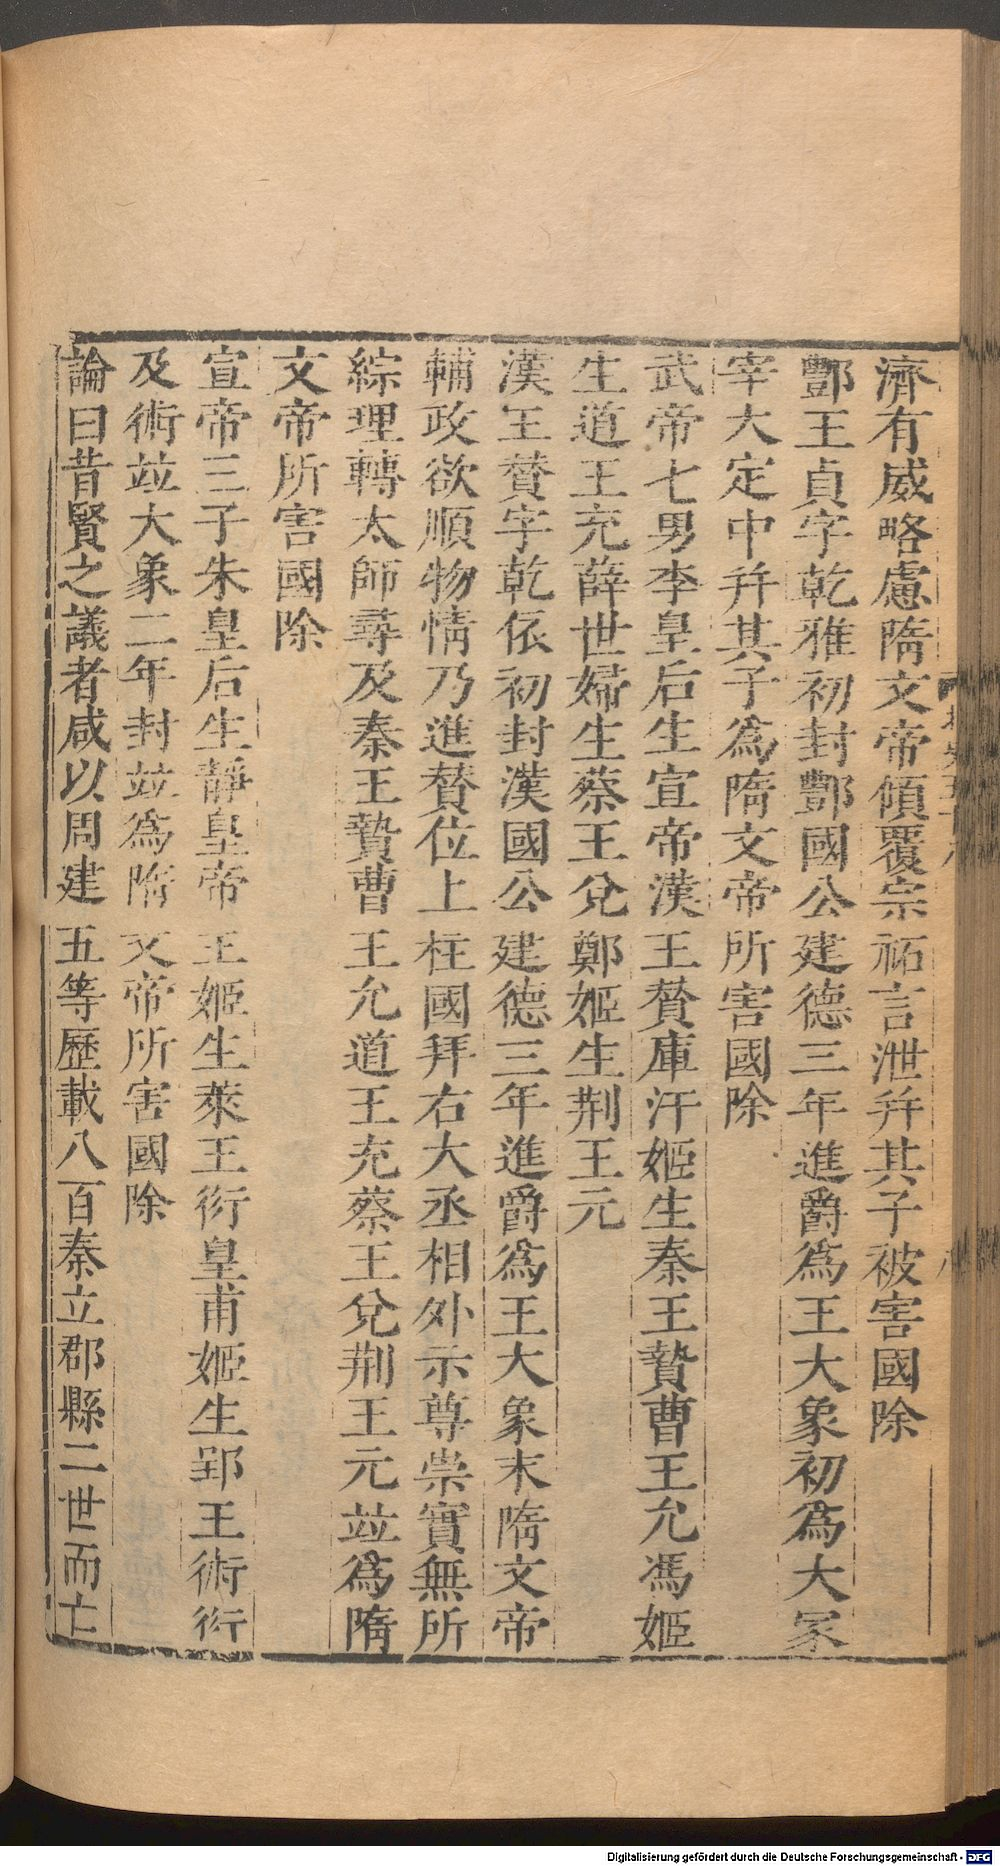 濟有威略慮隋文帝傾覆宗祏言泄幷其子被害國除
酆王貞字乾雅初封酆國公建德三年進爵爲王大象初爲大冢
宰大定中幷其子爲隋文帝所害國除
武帝七男李皇后生宣帝漢王贊庫汗姬生秦王贄曹王允馮姬
生道王充薛世婦生蔡王兌鄭姬生荆王元
漢王贊字乾依初封漢國公建德三年進爵爲王大象末隋文帝
輔政欲順物情乃進贊位上柱國拜右大丞相外示尊崇實無所
綜理轉太師尋及秦王贄曹王允道王充蔡王兌荆王元竝爲隋
文帝所害國除
宣帝三子朱皇后生靜皇帝王姬生萊王衍皇甫姬生郢王術衍
及術竝大象二年封竝爲隋文帝所害國除
論曰昔賢之議者咸以周建五等歷載八百秦立郡縣二世而亡
Digitalisierung gefördert durch die Deutsche Forschungsgemeinschaft - DFG